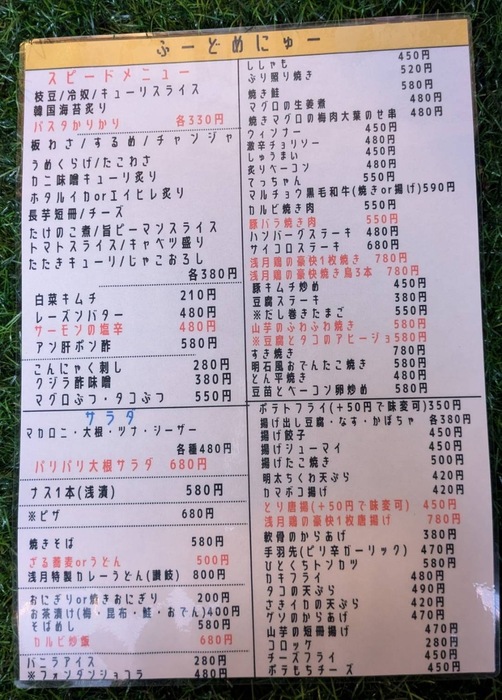 ふーどめにゅー
スピードメニュー
枝豆/冷奴/キューリスライス
韓国海苔炙り
パスタかりかり 各330円
板わさ/するめ/チャンジャ
うめくらげ/たこわさ
カニ味噌キューリ炙り
ホタルイカorエイヒレ炙り
長芋短冊/チーズ
たけのこ煮/旨ピーマンスライス
トマトスライス/キャベツ盛り
たたきキューリ/じゃこおろし
各380円
白菜キムチ 210円
レーズンバター 480円
サーモンの塩辛 480円
アン肝ポン酢 580円
こんにゃく刺し 280円
クジラ酢味噌 380円
マグロぶつ・タコぶつ 550円
サラダ
マカロニ・大根・ツナ・シーザー
各種480円
パリパリ大根サラダ 680円
ナス1本(浅漬) 580円
※ピザ 680円
焼きそば 580円
ざる蕎麦orうどん 500円
浅月特製カレーうどん(讃岐) 800円
おにぎりor焼きおにぎり 200円
お茶漬け(梅・昆布・鮭・おでん)400円
そばめし 580円
カルビ炒飯 680円
バニラアイス 280円
※フォンダンショコラ 480円
ししゃも 450円
ぶり照り焼き 520円
焼き鮭 580円
マグロの生姜煮 480円
焼きマグロの梅肉大葉のせ串 480円
ウィンナー 450円
激辛チョリソー 480円
しゅうまい 450円
炙りベーコン 480円
てっちゃん 550円
マルチョウ黒毛和牛(焼きor揚げ)590円
カルビ焼き肉 550円
豚バラ焼き肉 550円
ハンバーグステーキ 480円
サイコロステーキ 680円
浅月鶏の豪快1枚焼き 780円
浅月鶏の豪快焼き鳥3本 780円
豚キムチ炒め 450円
豆腐ステーキ 380円
※だし巻きたまご 550円
山芋のふわふわ焼き 580円
※豆腐とタコのアヒージョ580円
すき焼き 780円
明石風おでんたこ焼き 580円
とん平焼き 480円
豆苗とベーコン卵炒め 580円
ポテトフライ(+50円で味変可)350円
揚げ出し豆腐・なす・かぼちゃ 各380円
揚げ餃子 450円
揚げシューマイ 450円
揚げたこ焼き 500円
明太ちくわ天ぷら 420円
カマボコ揚げ 420円
とり唐揚(+50円で味変可) 450円
浅月鶏の豪快1枚唐揚げ 780円
軟骨のからあげ 380円
手羽先(ピリ辛ガーリック) 470円
ひとくちトンカツ 580円
カキフライ 480円
タコの天ぷら 490円
さきイカの天ぷら 420円
ゲソのからあげ 470円
山芋の短冊揚げ 470円
コロッケ 280円
チーズフライ 450円
ポテもちチーズ 450円